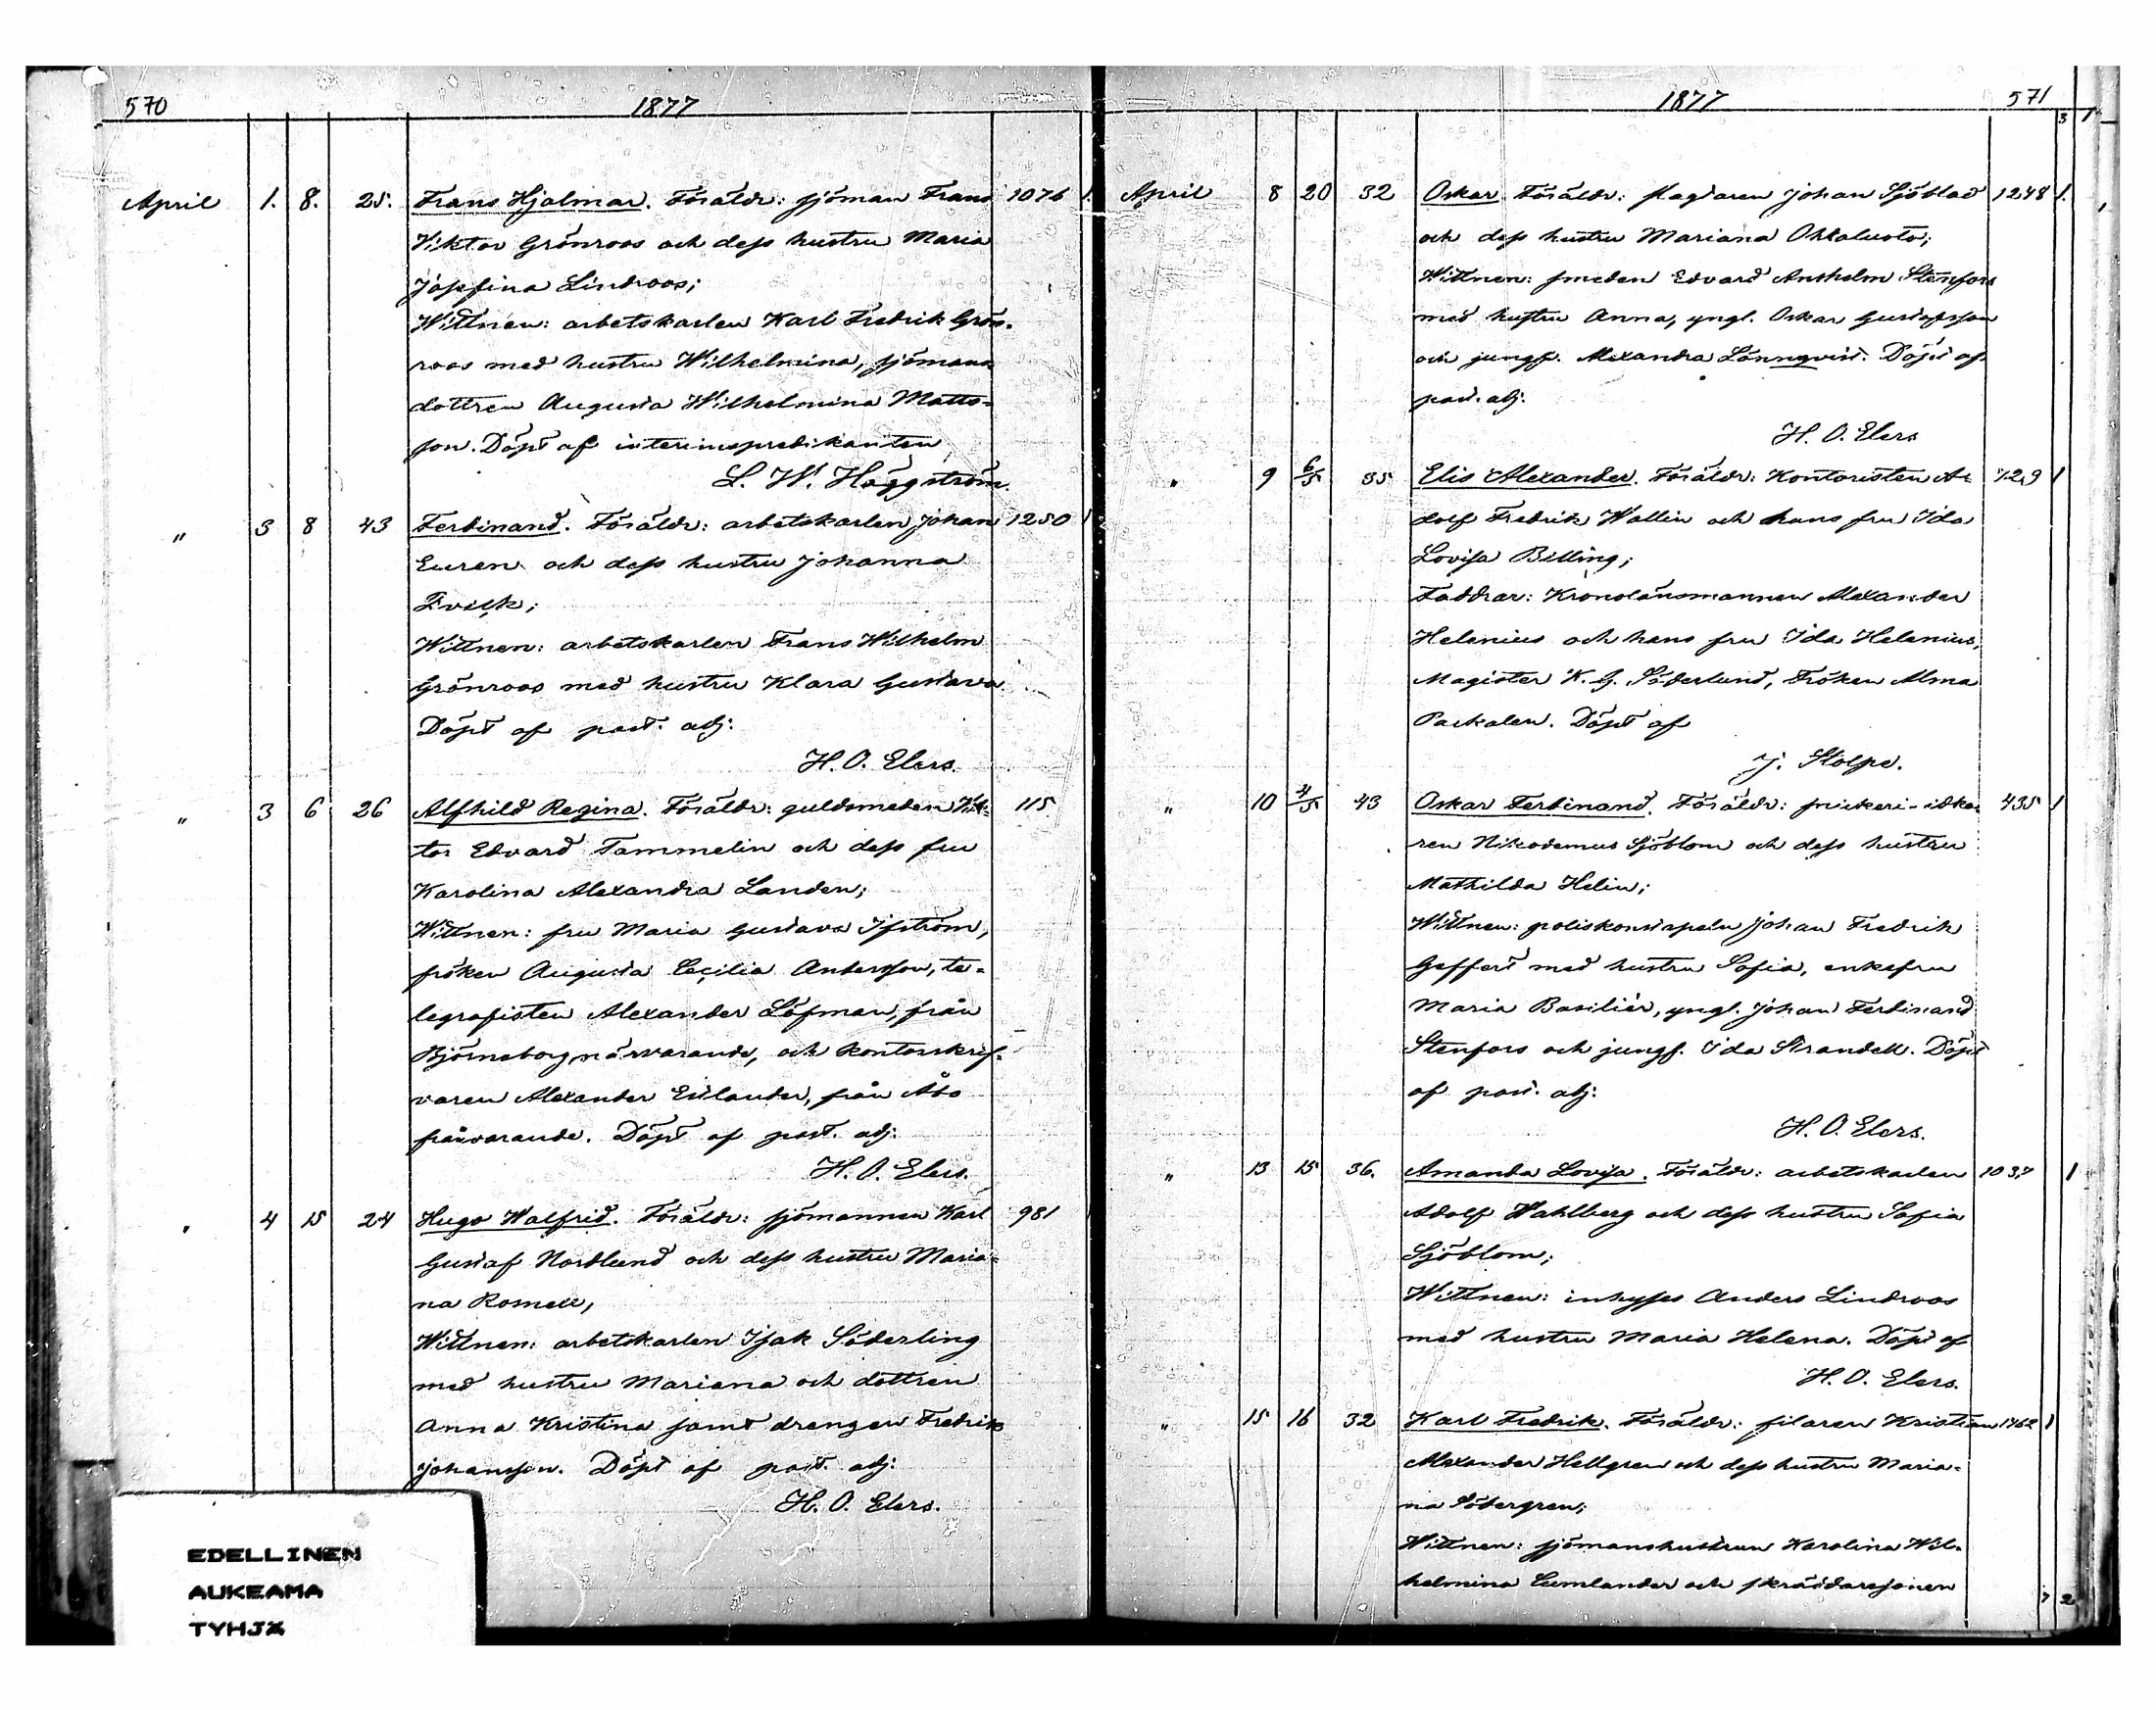 570 1877
April 1. 8. 25. Frans Hjalmar. Föräldr: sjöman Frans 1076 1
Viktor Grönroos och dess hustru Maria
Josefina Lindroos;
Wittnen: arbetskarlen Karl Fredrik Grön-
roos med hustru Wilhelmina, sjömans
dottren Augusta Wilhelmina Matts-
son. Döpt af interimspredikanten
L. W. Häggström.
" 3 8 43 Ferdinand. Föräldr: arbetskarlen Johan 1250 1
Euren och dess hustru Johanna
Wittnen: arbetskarlen Frans Wilhelm
Grönroos med hustru Klara Gustava
Döpt af past. adj:
H. O. Elers.
" 3 6 26 Alfhild Regina. Föräldr: guldsmeden Vik- 115
tor Edvard Tammelin och dess fru
Karolina Alexandra Landen;
Wittnen: fru Maria Gustava Isström,
fröken Augusta Cecilia Andersson, te-
legrafisten Alexander Löfman, från
Björneborg, närvarande, och kontorskrif-
varen Alexander Erlander, från Åbo
frånvarande. Döpt af past. adj.
H. O. Elers.
" 4 15 24 Hugo Walfrid. Föräldr: sjömannen Karl 981
Gustaf Nordlund och dess hustru Maria-
na Romell,
Wittnen: arbetskarlen Isak Söderling
med hustru Mariana och dottren
Anna Kristina samt drengen Fredrik
Johansson. Döpt af past. adj:
H. O. Elers.
EDELLINEN
AUKEAMA
TYHJÄ
1877 571
April 8 20 32 Oskar. Föräldr: slagtaren Johan Sjöblad 1248 1.
och dess hustru Mariana Ohtaluoto;
Wittnen: smeden Edvard Anshelm Stenfors
med hustru Anna, yngl. Oskar Gustafsson
och jungf. Alexandra Lönnqvist. Döpt af
past. adj.
H. O. Elers
" 9 6/5 35 Elis Alexander. Föräldr: Kontoristen A- 729 1
dolf Fredrik Wallin och hans fru Ida
Lovisa Billing;
Faddrar: Kronolänsmannen Alexander
Helenius och hans fru Ida Helenius,
Magister K. G. Söderlund, Fröken Alma
Packalen. Döpt af
J. Stolpe.
" 10 4/5 43 Oskar Ferdinand. Föräldr: snickeri-idka- 435 1
ren Nikodemus Sjöblom och dess hustru
Mathilda Helin;
Wittnen: poliskonstapeln Johan Fredrik
Geffert med hustru Sofia, enkefru
Maria Basilier, yngl. Johan Ferdinand
Stenfors och jungf. Ida Strandell. Döpt
af past. adj:
H. O. Elers.
" 13 15 36. Amanda Lovisa. Föräldr: arbetskarlen 1037 1
Adolf Wahlberg och dess hustru Sofia
Sjöblom;
Wittnen: inhyses Anders Lindroos
med hustru Maria Helena. Döpt af
H. O. Elers.
" 15 16 32 Karl Fredrik. Föräldr: filaren Kristian 1462 1
Alexander Hellgren och dess hustru Maria-
na Söbergren;
Wittnen: sjömanshustrun Karolina Wil-
helmina Lumlander och skräddaresonen